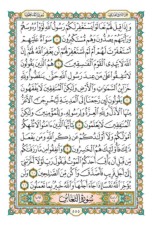 وَإِذَا قِيلَ لَهُمْ تَعَالَوْا۟ يَسْتَغْفِرْ لَكُمْ رَسُولُ ٱللَّهِ لَوَّوْا۟ رُءُوسَهُمْ
وَرَأَيْتَهُمْ يَصُدُّونَ وَهُم مُّسْتَكْبِرُونَ ۝ سَوَآءٌ عَلَيْهِمْ
أَسْتَغْفَرْتَ لَهُمْ أَمْ لَمْ تَسْتَغْفِرْ لَهُمْ لَن يَغْفِرَ ٱللَّهُ لَهُمْ إِنَّ
ٱللَّهَ لَا يَهْدِى ٱلْقَوْمَ ٱلْفَٰسِقِينَ ۝ هُمُ ٱلَّذِينَ يَقُولُونَ
لَا تُنفِقُوا۟ عَلَىٰ مَنْ عِندَ رَسُولِ ٱللَّهِ حَتَّىٰ يَنفَضُّوا۟ وَلِلَّهِ
خَزَآئِنُ ٱلسَّمَٰوَٰتِ وَٱلْأَرْضِ وَلَٰكِنَّ ٱلْمُنَٰفِقِينَ لَا يَفْقَهُونَ ۝
يَقُولُونَ لَئِن رَّجَعْنَآ إِلَى ٱلْمَدِينَةِ لَيُخْرِجَنَّ ٱلْأَعَزُّ مِنْهَا ٱلْأَذَلَّ
وَلِلَّهِ ٱلْعِزَّةُ وَلِرَسُولِهِۦ وَلِلْمُؤْمِنِينَ وَلَٰكِنَّ ٱلْمُنَٰفِقِينَ
لَا يَعْلَمُونَ ۝ يَٰٓأَيُّهَا ٱلَّذِينَ ءَامَنُوا۟ لَا تُلْهِكُمْ أَمْوَٰلُكُمْ
وَلَآ أَوْلَٰدُكُمْ عَن ذِكْرِ ٱللَّهِ وَمَن يَفْعَلْ ذَٰلِكَ فَأُو۟لَٰٓئِكَ
هُمُ ٱلْخَٰسِرُونَ ۝ وَأَنفِقُوا۟ مِن مَّا رَزَقْنَٰكُم مِّن قَبْلِ أَن يَأْتِىَ
أَحَدَكُمُ ٱلْمَوْتُ فَيَقُولَ رَبِّ لَوْلَآ أَخَّرْتَنِىٓ إِلَىٰٓ أَجَلٍ قَرِيبٍ
فَأَصَّدَّقَ وَأَكُن مِّنَ ٱلصَّٰلِحِينَ ۝ وَلَن يُؤَخِّرَ ٱللَّهُ نَفْسًا
إِذَا جَآءَ أَجَلُهَا وَٱللَّهُ خَبِيرٌۢ بِمَا تَعْمَلُونَ ۝
سُورَةُ التَّغَابُنِ
٥٥٥